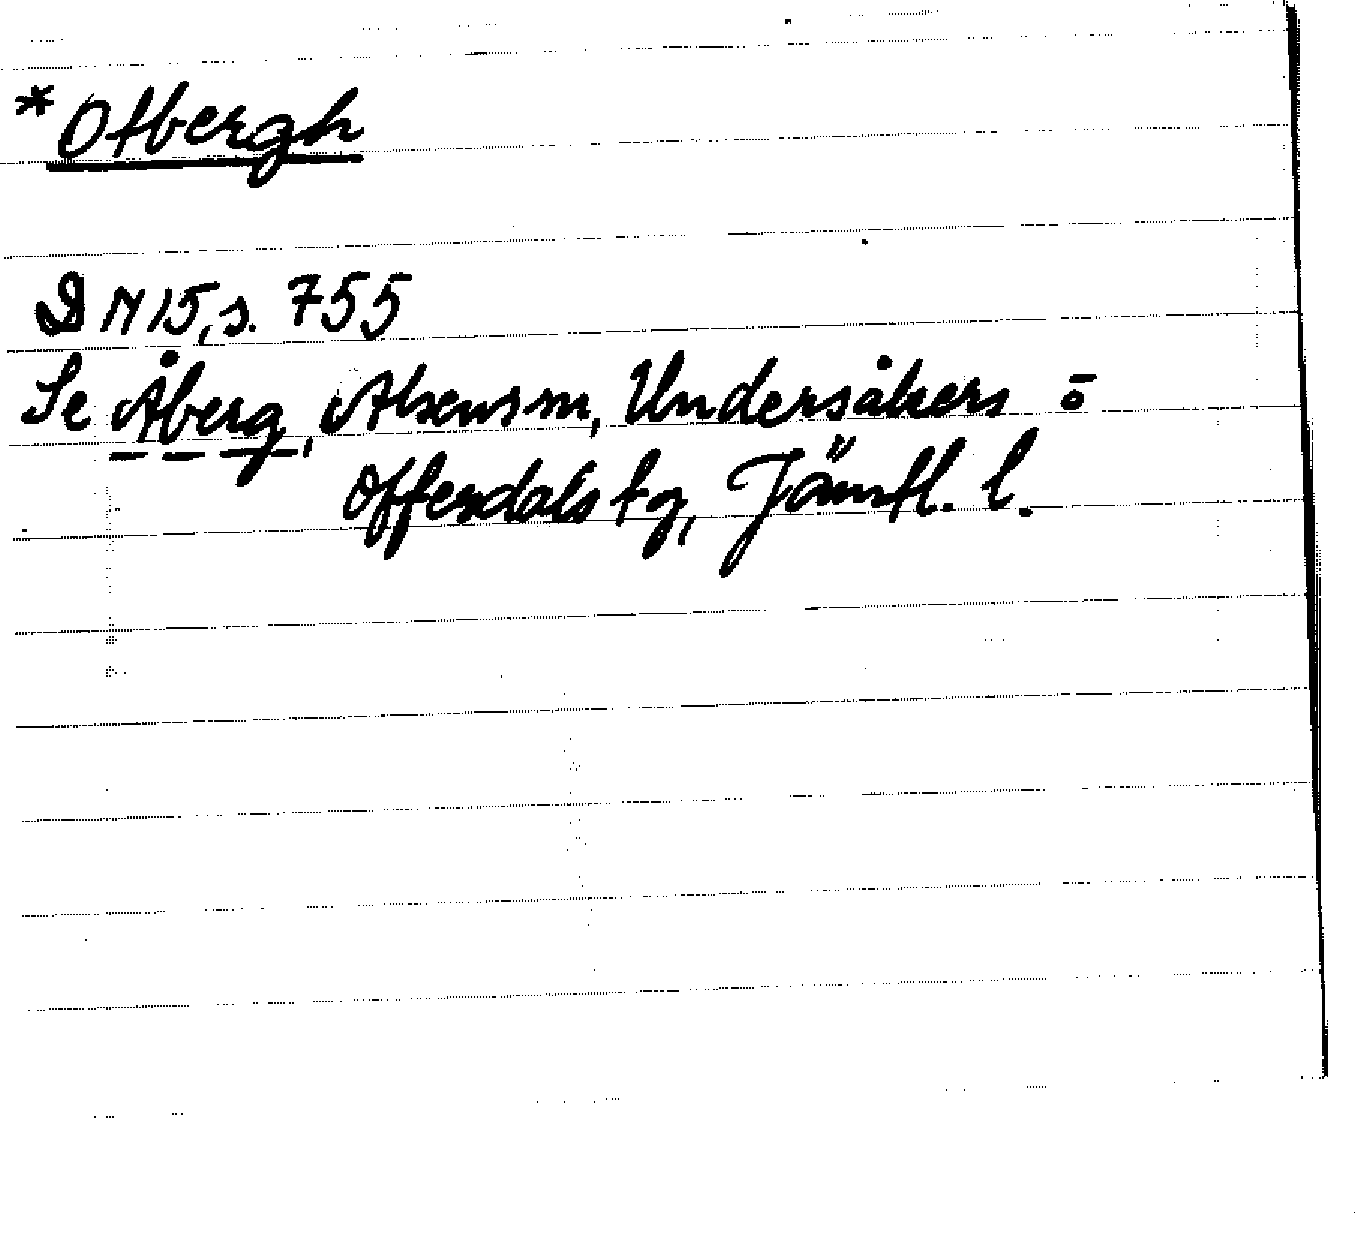 *Otbergh
DN 15, s. 755
Se Åberg, Alsens sn, Undersåkers o
Offerdals tg, Jämtl. l.